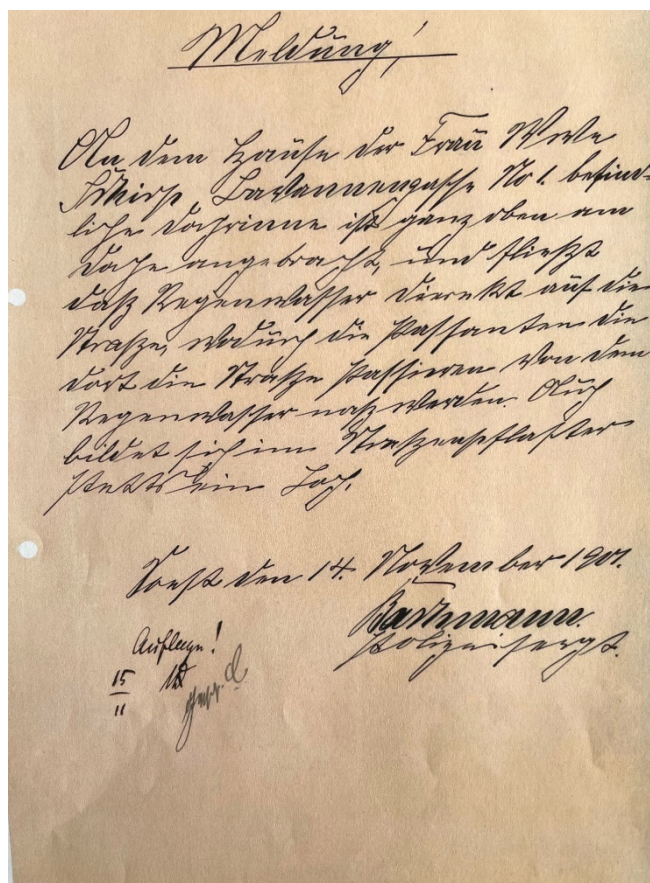 Meldung!
An dem Hause der Frau Wwe
Lavannengasse No 1. befind-
liche Dachrinne ist ganz oben am
Dache angebracht, und fließt
daß Regenwasser direkt auf die
Straße, wodurch die Passanten die
dort die Straße passieren von dem
Regenwasser naß werden. Auch
bildet sich im Straßenpflaster
stetts ein Loch.
Soest den 14. November 1901.
Polizeisergt.
Auflage!
15
11